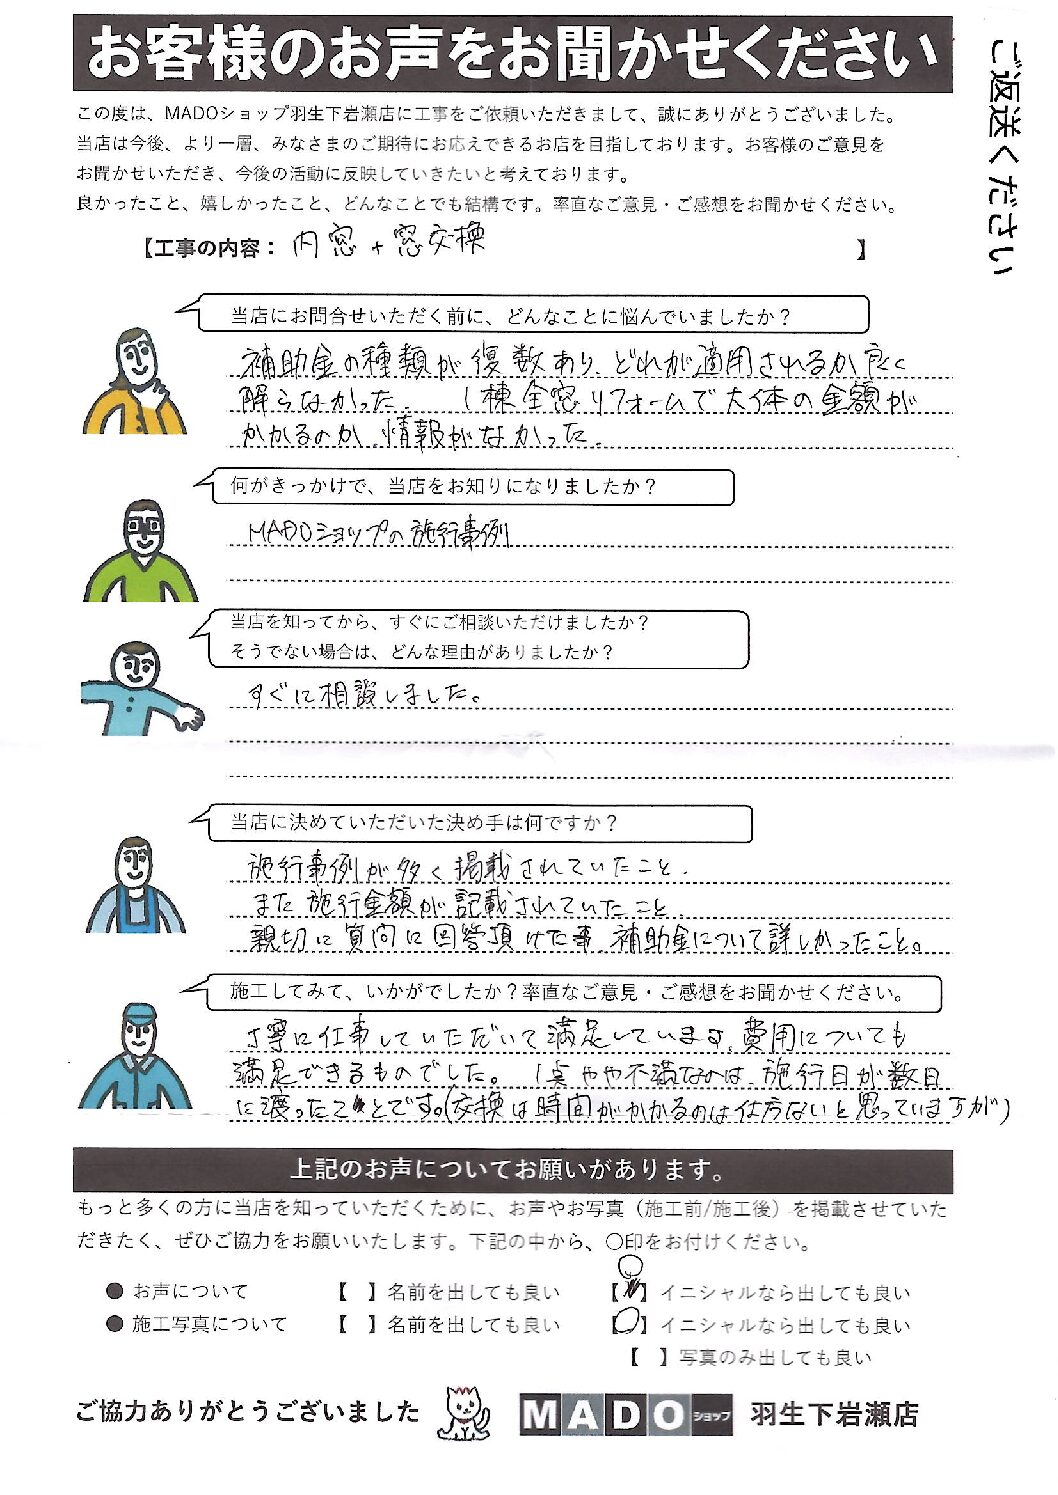 お客様のお声をお聞かせください
ご返送ください
この度は、MADOショップ羽生下岩瀬店に工事をご依頼いただきまして、誠にありがとうございました。
当店は今後、より一層、みなさまのご期待にお応えできるお店を目指しております。お客様のご意見を
お聞かせいただき、今後の活動に反映していきたいと考えております。
良かったこと、嬉しかったこと、どんなことでも結構です。率直なご意見・ご感想をお聞かせください。
【工事の内容： 内窓 + 窓交換 】
当店にお問合せいただく前に、どんなことに悩んでいましたか？
補助金の種類が複数あり、どれが適用されるか良く
解らなかった。 1棟全窓リフォームで大体の金額が
かかるのか、情報がなかった。
何がきっかけで、当店をお知りになりましたか？
MADOショップの施行事例
当店を知ってから、すぐにご相談いただけましたか？
そうでない場合は、どんな理由がありましたか？
すぐに相談しました。
当店に決めていただいた決め手は何ですか？
施行事例が多く掲載されていたこと。
また施行金額が記載されていたこと。
親切に質問に回答頂けた事、補助金について詳しかったこと。
施工してみて、いかがでしたか？率直なご意見・ご感想をお聞かせください。
丁寧に仕事していただいて満足しています。費用についても
満足できるものでした。 1点やや不満なのは、施行日が数日
に渡ったことです。(交換は時間がかかるのは仕方ないと思っていますが)
上記のお声についてお願いがあります。
もっと多くの方に当店を知っていただくために、お声やお写真（施工前/施工後）を掲載させていた
だきたく、ぜひご協力をお願いいたします。下記の中から、〇印をお付けください。
● お声について 【 】名前を出しても良い 【〇】イニシャルなら出しても良い
● 施工写真について 【 】名前を出しても良い 【〇】イニシャルなら出しても良い
【 】写真のみ出しても良い
ご協力ありがとうございました MADOショップ 羽生下岩瀬店